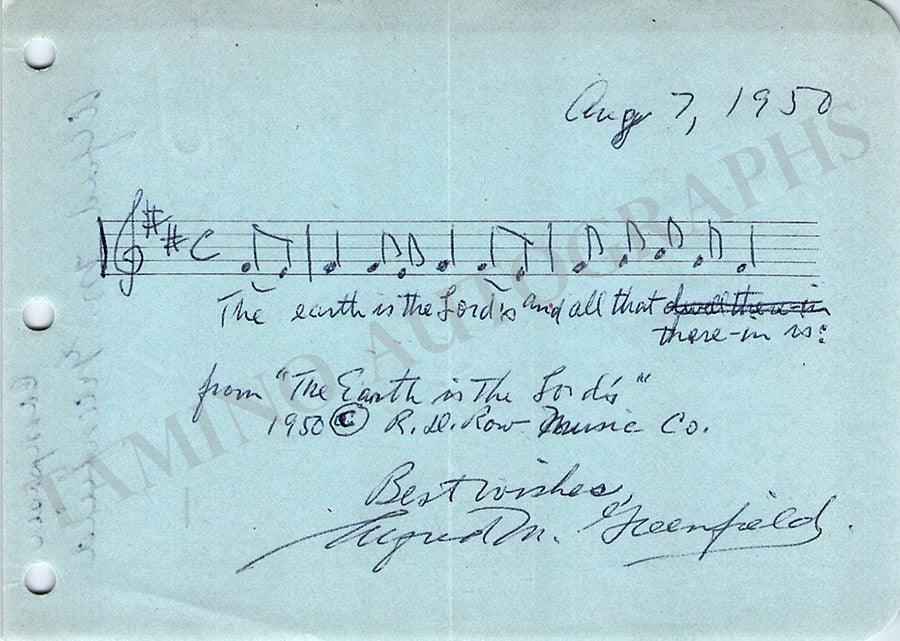 Aug 7, 1950
The earth is the Lord's and all that dwell there-in
there-in is:
from "The Earth is The Lord's"
1950 © R. D. Row Music Co.
Best wishes,
Alfred M. Greenfield.
TAMINO AUTOGRAPHS